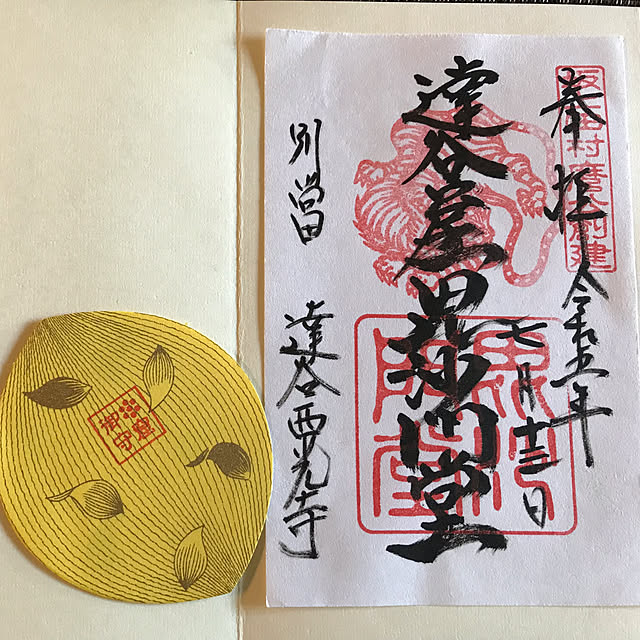 奉拝
令和五年
七月十三日
坂上田村麿公創建
達谷窟毘沙門堂
別當
達谷西光寺